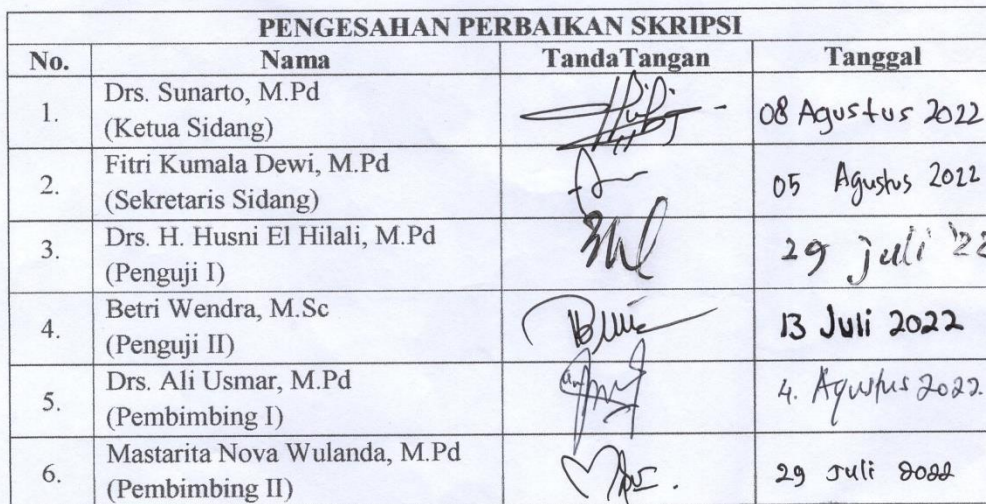 PENGESAHAN PERBAIKAN SKRIPSI
No. Nama TandaTangan Tanggal
1. Drs. Sunarto, M.Pd
(Ketua Sidang) 08 Agustus 2022
2. Fitri Kumala Dewi, M.Pd
(Sekretaris Sidang) 05 Agustus 2022
3. Drs. H. Husni El Hilali, M.Pd
(Penguji I) 29 juli '22
4. Betri Wendra, M.Sc
(Penguji II) 13 Juli 2022
5. Drs. Ali Usmar, M.Pd
(Pembimbing I) 4. Agustus 2022.
6. Mastarita Nova Wulanda, M.Pd
(Pembimbing II) 29 Juli 2022